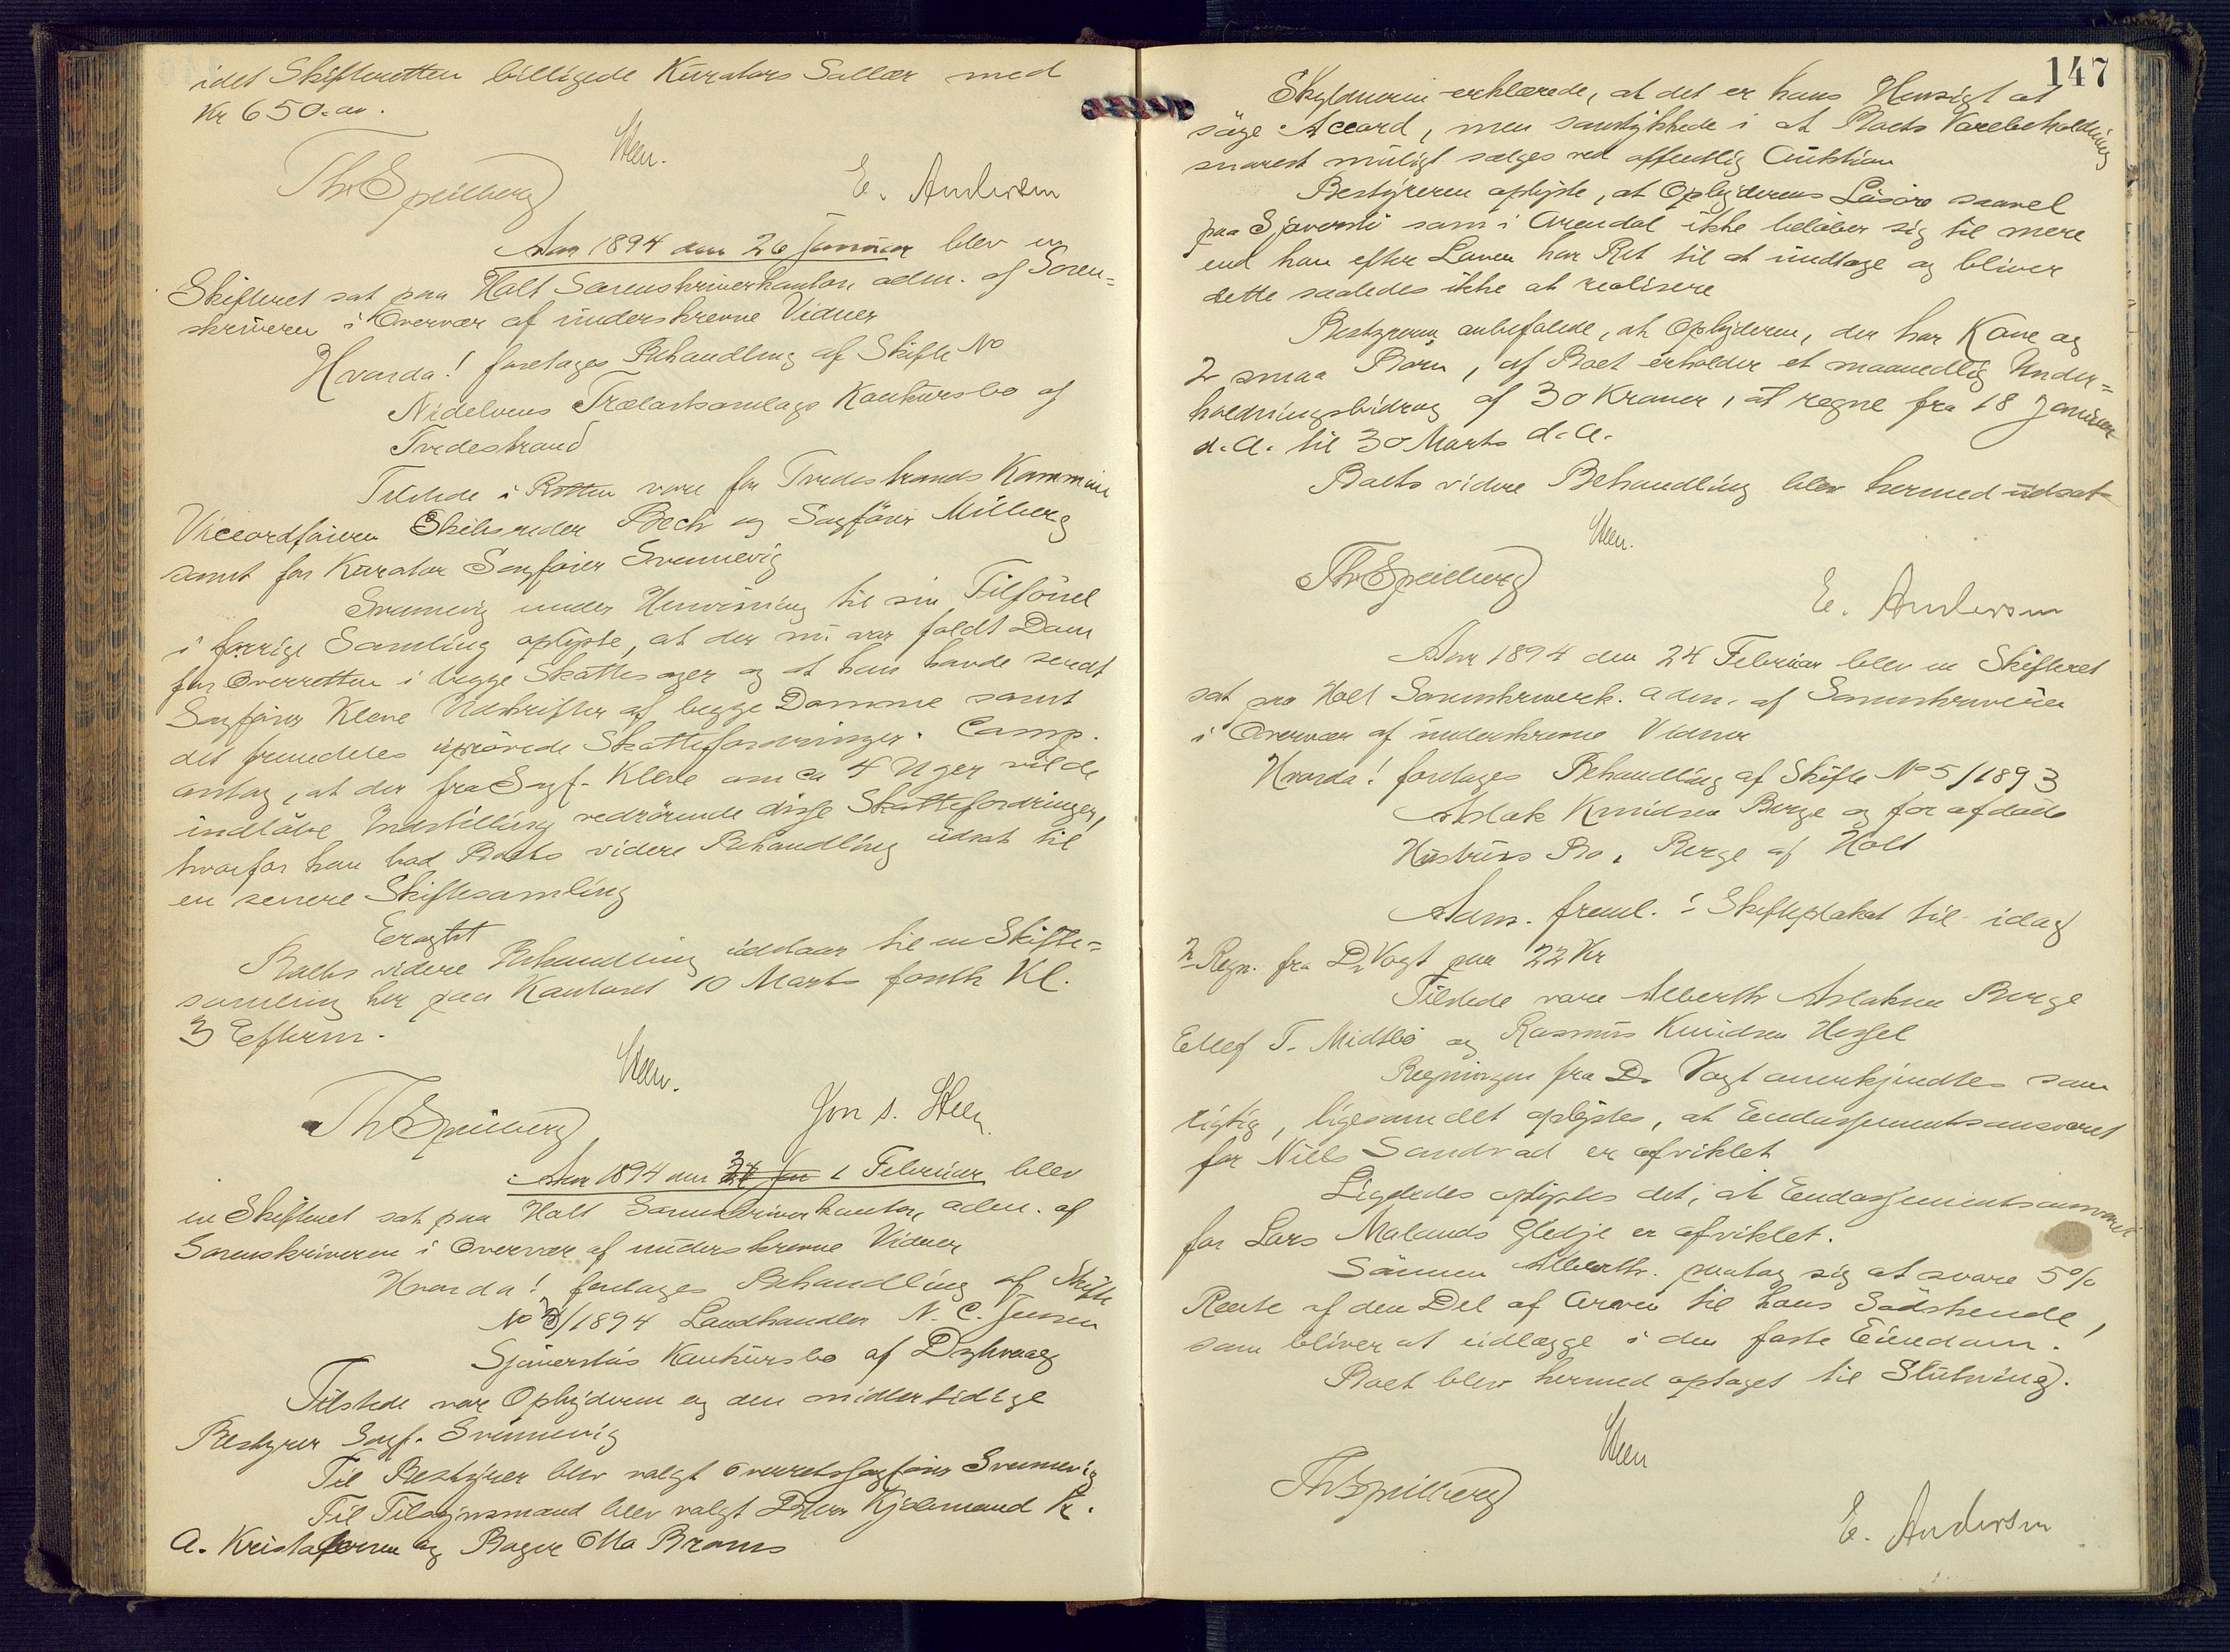 idet Skifteretten billigede Kurators Sallær med
Kr 650.00.
Steen.
Th Speilberg
E. Andersen
Aar 1894 den 26 Januar blev en
Skifteret sat paa Holt Sorenskriverkontor, adm. af Soren=
skriveren i Overvær af underskrevne Vidner
Hvorda! foretages Behandling af Skifte No
Nidelvens Trælastsamlags Konkursbo af
Tvedestrand
Tilstede i Retten vare for Tvedestrands Kommune
Viceordføreren Skibsreder Bech og Sagfører Milberg
samt for Kurator Sagfører Svennevig
Svennevig under Henvisning til sin Tilførsel
i forrige Samling oplyste, at der nu var faldt Dom
for Overretten i begge Skattesager og at han havde sendt
Sagfører Kleve Udskrifter af begge Domme samt
det fremdeles uprøvede Skattefordringer. Comp.
antog, at der fra Sagf. Kleve om ca 4 Uger vilde
indløbe Indstilling vedrørende disse Skattefordringer,
hvorfor han bad Boets videre Behandling udsat til
en senere Skiftesamling
Eragtet
Boets videre Behandling udstaar til en Skifte=
samling her paa Kontoret 10 Marts førstk Kl.
3 Efterm.
Steen.
Th Speilberg
Jon S. Steen
Aar 1894 den 1 Februar blev
en Skifteret sat paa Holt Sorenskriverkontor, adm. af
Sorenskriveren i Overvær af underskrevne Vidner
Hvorda! foretages Behandling af Skifte
No /1894 Landhandler N. C. Jensen
Sjøverstøs Konkursbo af Dyhvaag
Tilstede var Opbyderen og den midlertidige
Bestyrer Sagf. Svennevig
Til Bestyrer blev valgt Overretssagfører Svennevig
Til Tilsynsmænd blev valgt Kjøbmand Kr.
A. Kristofersen og Bager Otto Broms
147
Skyldneren erklærede, at det er hans Hensigt at
søge Accord, men samtykkede i at Boets Varebeholdning
snarest muligt sælges ved offentlig Auktion
Bestyreren oplyste, at Opbyderens Løsøre saavel
paa Sjøverstø som i Arendal ikke beløber sig til mere
end han efter Loven har Ret til at undtage og bliver
dette saaledes ikke at realisere
Bestyreren anbefalede, at Opbyderen, der har Kone og
2 smaa Børn, af Boet erholder et maanedlig Under=
holdningsbidrag af 30 Kroner, at regne fra 18 Januar
d.A. til 30 Marts d.A.
Boets videre Behandling blev hermed udsat
Steen.
Th Speilberg
E. Andersen
Aar 1894 den 24 Februar blev en Skifteret
sat paa Holt Sorenskriverk. adm. af Sorenskriveren
i Overvær af underskrevne Vidner
Hvorda! foretages Behandling af Skifte No 5/1893
Aslak Knudsen Berge og før afdøde
Hustrus Bo, Berge af Holt
Adm. freml. 1 Skifteplakat til idag
2 Regn. fra Dr Vogt paa 22 Kr
Tilstede vare Alberth Aslaksen Berge
Ellef T. Midtbø og Rasmus Knudsen Hessel
Regningen fra Dr Vogt anerkjendtes som
rigtig, ligesom det oplystes, at Endossementsansvaret
for Niels Sandvad er afviklet
Ligeledes oplystes det, at Endossementsansvaret
for Lars Malmods Gledje er afviklet.
Sønnen Alberth. paatog sig at svare 5%
Rente af den Del af Arven til hans Sødskende,
som bliver at udlægge i den faste Eiendom.
Boet blev hermed optaget til Slutning.
Steen
Th Speilberg
E. Andersen